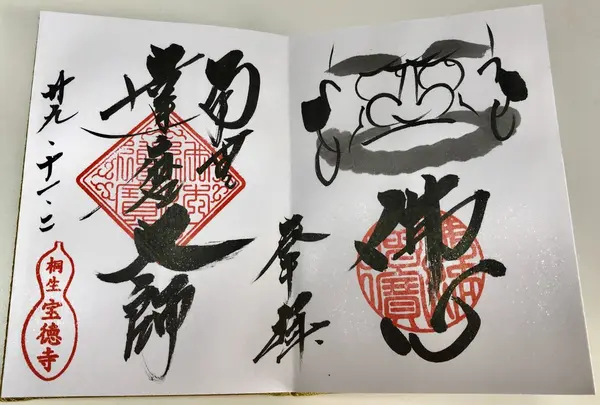 佛心
奉拝
南無
達磨大師
廿九・十一・二
桐生宝徳寺